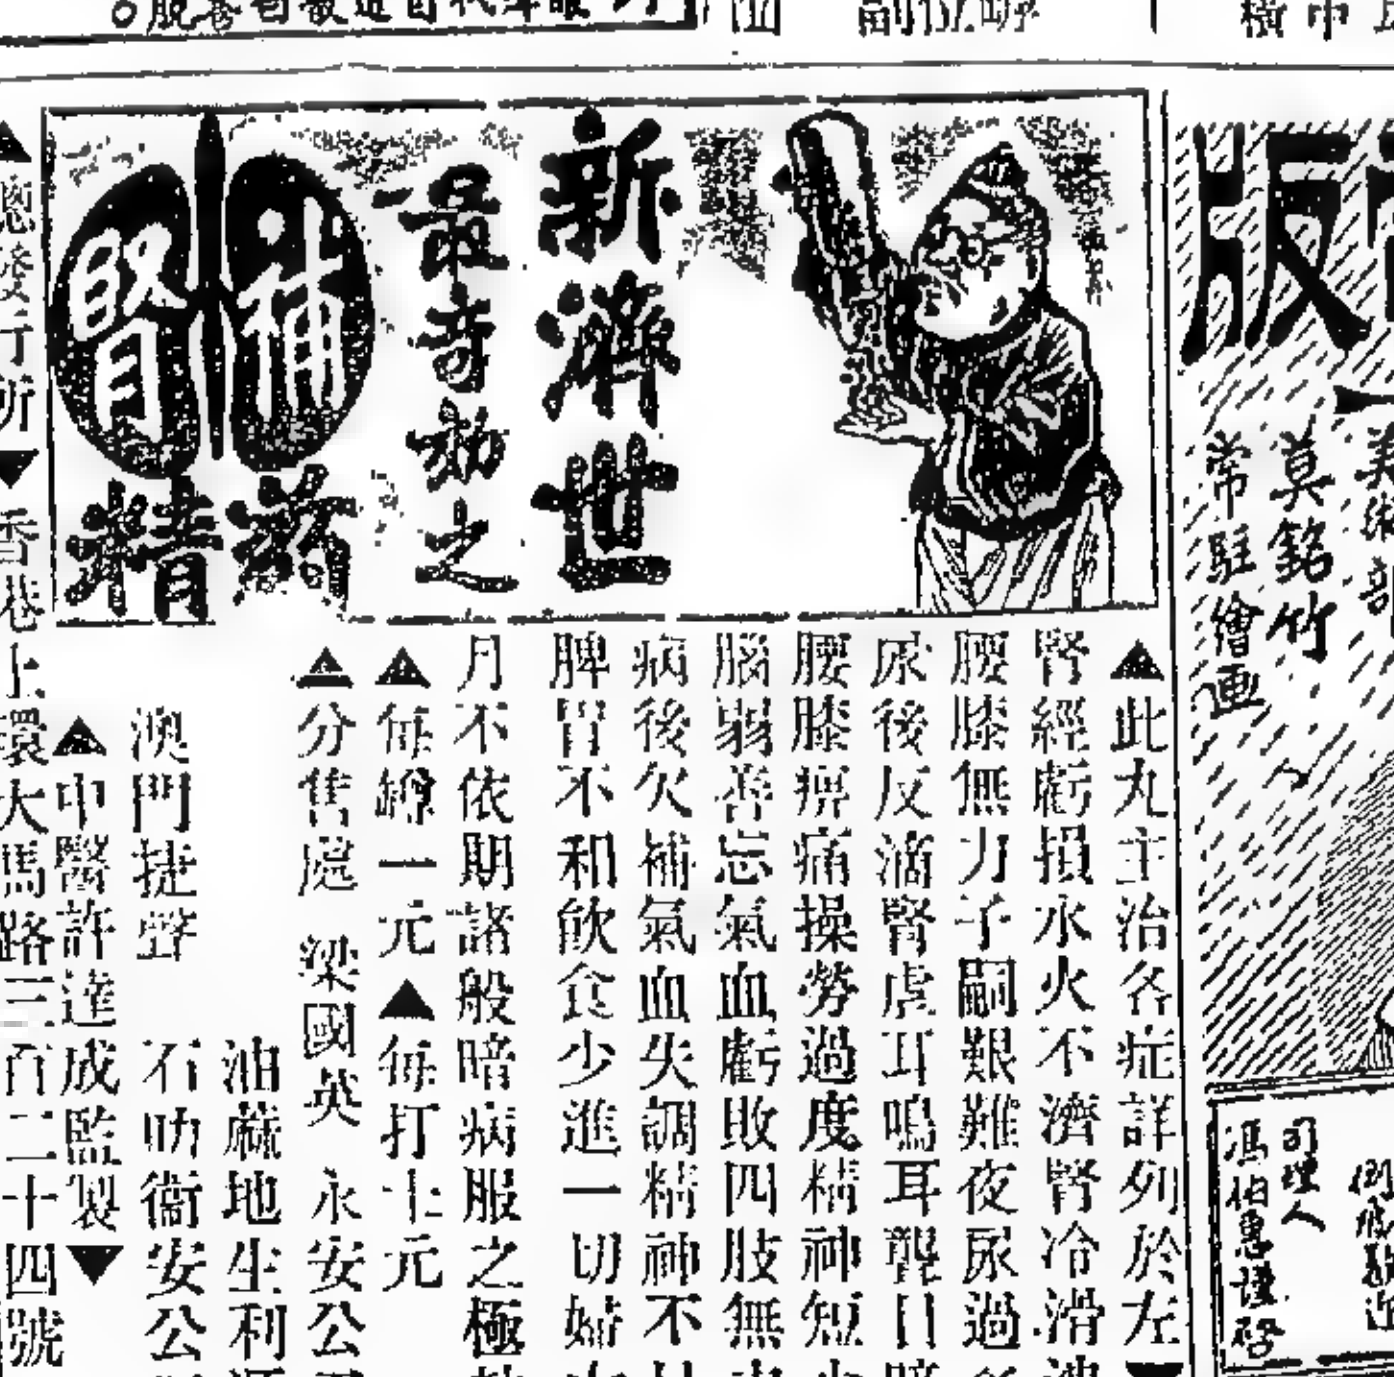 新濟世
最奇効之
補腎
葯精
▲此丸主治各症詳列於左
腎經虧損水火不濟腎冷滑
腰膝無力子嗣艱難夜尿過
尿後反滴腎虛耳鳴耳聾目暗
腰膝痹痛操勞過度精神短少
腦弱善忘氣血虧敗四肢無
病後欠補氣血失調精神不
脾胃不和飲食少進一切婦
月不依期諸般暗病服之極
▲每罇一元▲每打十元
▲分售處 梁國英 永安公司
油蔴地生利源
澳門捷聲 石叻衞安公
▲中醫許達成監製▼
▲總發行所▼香港上環大馬路三百二十四號
版
美術部
莫銘竹
常駐繪画
司理人
馮伯惠謹啓